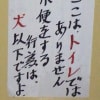 ここは・トイレでは
ありません
小便をする
行為は、
犬以下ですよ